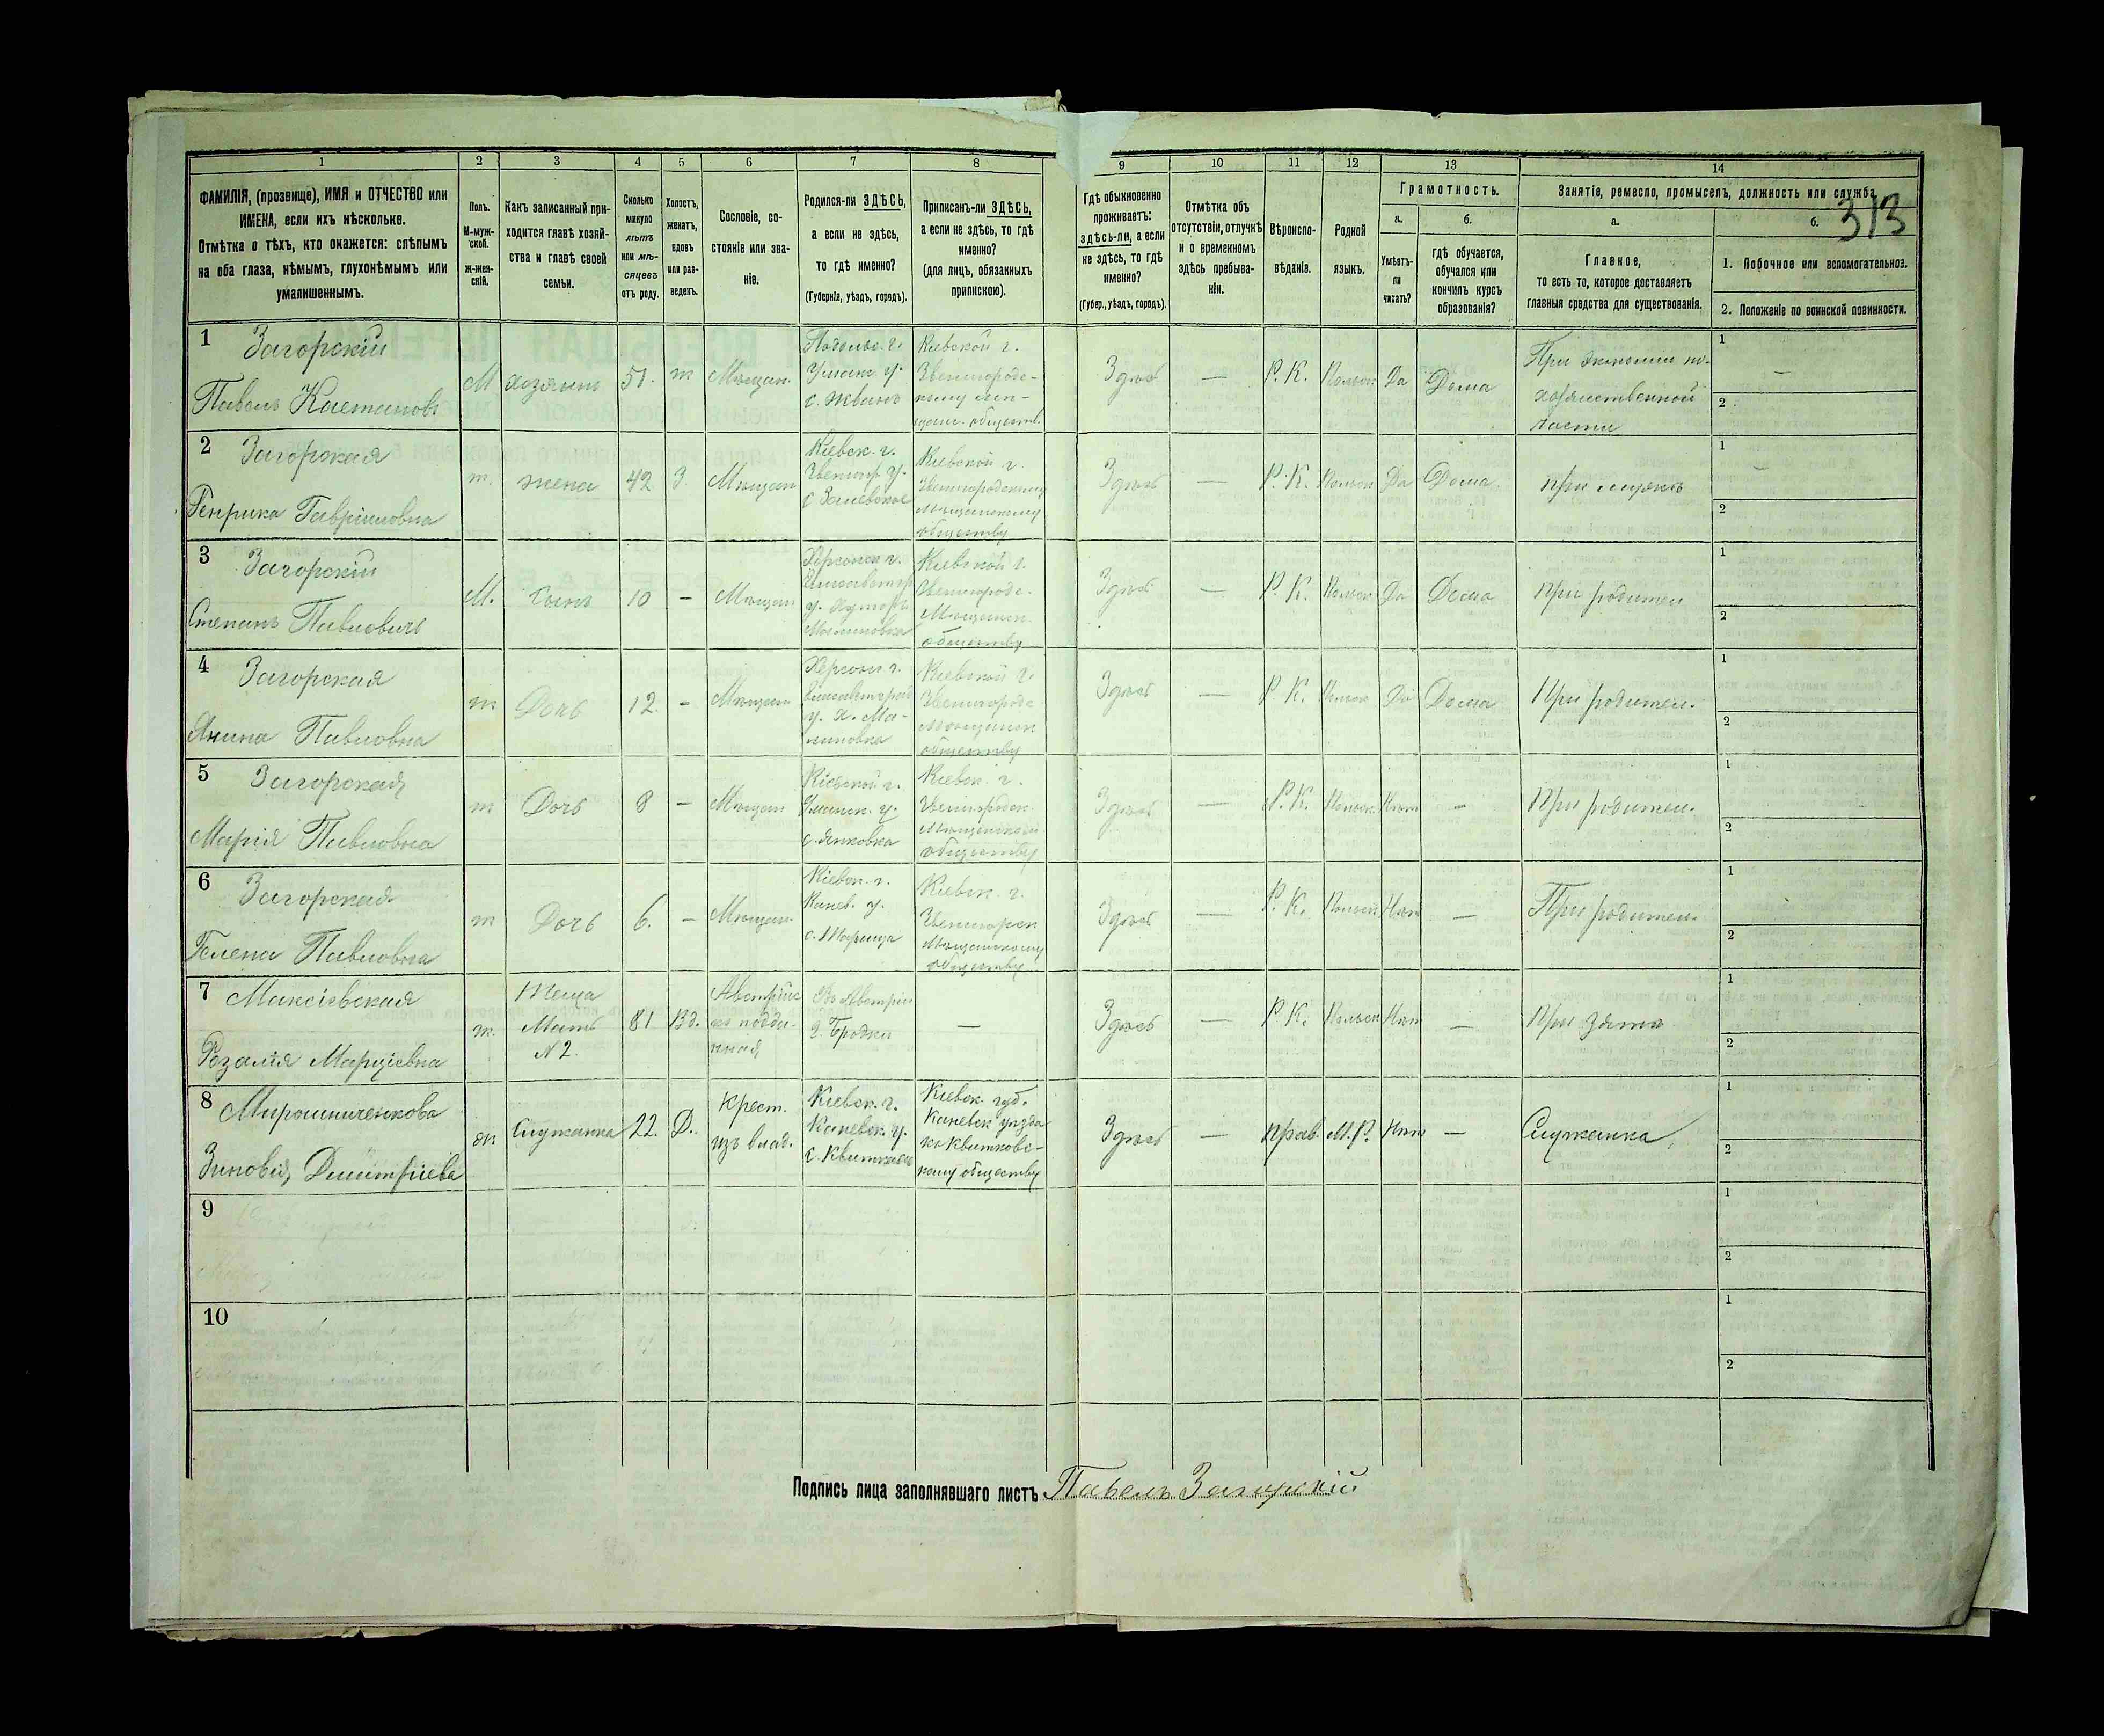 313
1 2 3 4 5 6 7 8 9 10 11 12 13 14
ФАМИЛІЯ, (прозвище), ИМЯ и ОТЧЕСТВО или
ИМЕНА, если ихъ нѣсколько.
Отмѣтка о тѣхъ, кто окажется: слѣпымъ
на оба глаза, нѣмымъ, глухонѣмымъ или
умалишеннымъ.
Полъ.
М-муж-
ской.
ж-жен-
скій.
Какъ записанный при-
ходится главѣ хозяй-
ства и главѣ своей
семьи.
Сколько
минуло
лѣтъ
или мѣ-
сяцевъ
отъ роду.
Холостъ,
женатъ,
вдовъ
или раз-
веденъ.
Сословіе, со-
стояніе или зва-
ніе.
Родился-ли ЗДѢСЬ,
а если не здѣсь,
то гдѣ именно?
(Губернія, уѣздъ, городъ).
Приписанъ-ли ЗДѢСЬ,
а если не здѣсь, то гдѣ
именно?
(для лицъ, обязанныхъ
припискою).
Гдѣ обыкновенно
проживаетъ:
здѣсь-ли, а если
не здѣсь, то гдѣ
именно?
(Губер., уѣздъ, городъ).
Отмѣтка объ
отсутствіи, отлучкѣ
и о временномъ
здѣсь пребыва-
ніи.
Вѣроиспо-
вѣданіе.
Родной
языкъ.
Грамотность.
а.
Умѣетъ-
ли
читать?
б.
гдѣ обучается,
обучался или
кончилъ курсъ
образованія?
Занятіе, ремесло, промыселъ, должность или служба.
а.
Главное,
то есть то, которое доставляетъ
главныя средства для существованія.
б.
1. Побочное или вспомогательное.
2. Положеніе по воинской повинности.
1 Загорскій
Павелъ
М хозяинъ 51. ж Мѣщан.
Подольс. г.
с. Жванъ
Кіевской г.
Звенигородс-
кому мѣ-
щан. обществ.
Здѣсь — Р. К. Польск Да Дома
При экономіи по
хозяйственной
части
1 —
2
2 Загорская
Генрика Гавриловна
ж. жена 42 З. Мѣщан
Кіевск. г.
Звенигор у.
Кіевской г.
Звенигородскому
Мѣщанскому
обществу
Здѣсь — Р. К. Польск Да Дома
при мужѣ
1 —
2
3 Загорскій
Степанъ Павловичъ
М. Сынъ 10 — Мѣщан
Херсонск г.
Елисаветгр
у. Хуторъ
Малиновка
Кіевской г.
Звенигородс.
Мѣщанск.
обществу
Здѣсь — Р. К. Польск Да Дома
При родител
1
2
4 Загорская
Янина Павловна
ж Дочь 12. — Мѣщан
Херсонс г.
Елисаветград
у. х. Ма-
линовка
Кіевской г.
Звенигородс
Мѣщанск
обществу
Здѣсь — Р. К. Польск Да Дома
При родител.
1
2
5 Загорская
Марія Павловна
ж Дочь 8 — Мѣщан
Кіевской г.
Уманск. у.
с. Янковка
Кіевск. г.
Звенигородск.
Мѣщанскому
обществу
Здѣсь — Р. К. Польск. Нѣт —
При родител.
1
2
6 Загорская
Гелена Павловна
ж Дочь 6. — Мѣщан.
Кіевск. г.
Канев. у.
Кіевск. г.
Звенигорск
Мѣщанскому
обществу
Здѣсь — Р. К. Польск Нѣт —
При родител.
1
2
7 Максіевская
Розалія Марціевна
ж. Теща
Мать
№ 2.
81 Вд.
Австрійс
ко подда-
нная
Въ Австріи
г. Броды
—
Здѣсь — Р. К. Польск Нѣт —
При зятѣ
1
2
8 Мирошниченкова
Зиновія Дмитріева
ж Служанка 22. Д.
Крест.
изъ влад.
Кіевск. г.
Каневск. у.
Кіевск. губ.
Каневск уѣзда
къ Квитковс-
кому обществу
Здѣсь — прав. М. Р. Нѣт —
Служанка
1
2
9
1
2
10
1
2
Подпись лица заполнявшаго листъ Павелъ Загорскій